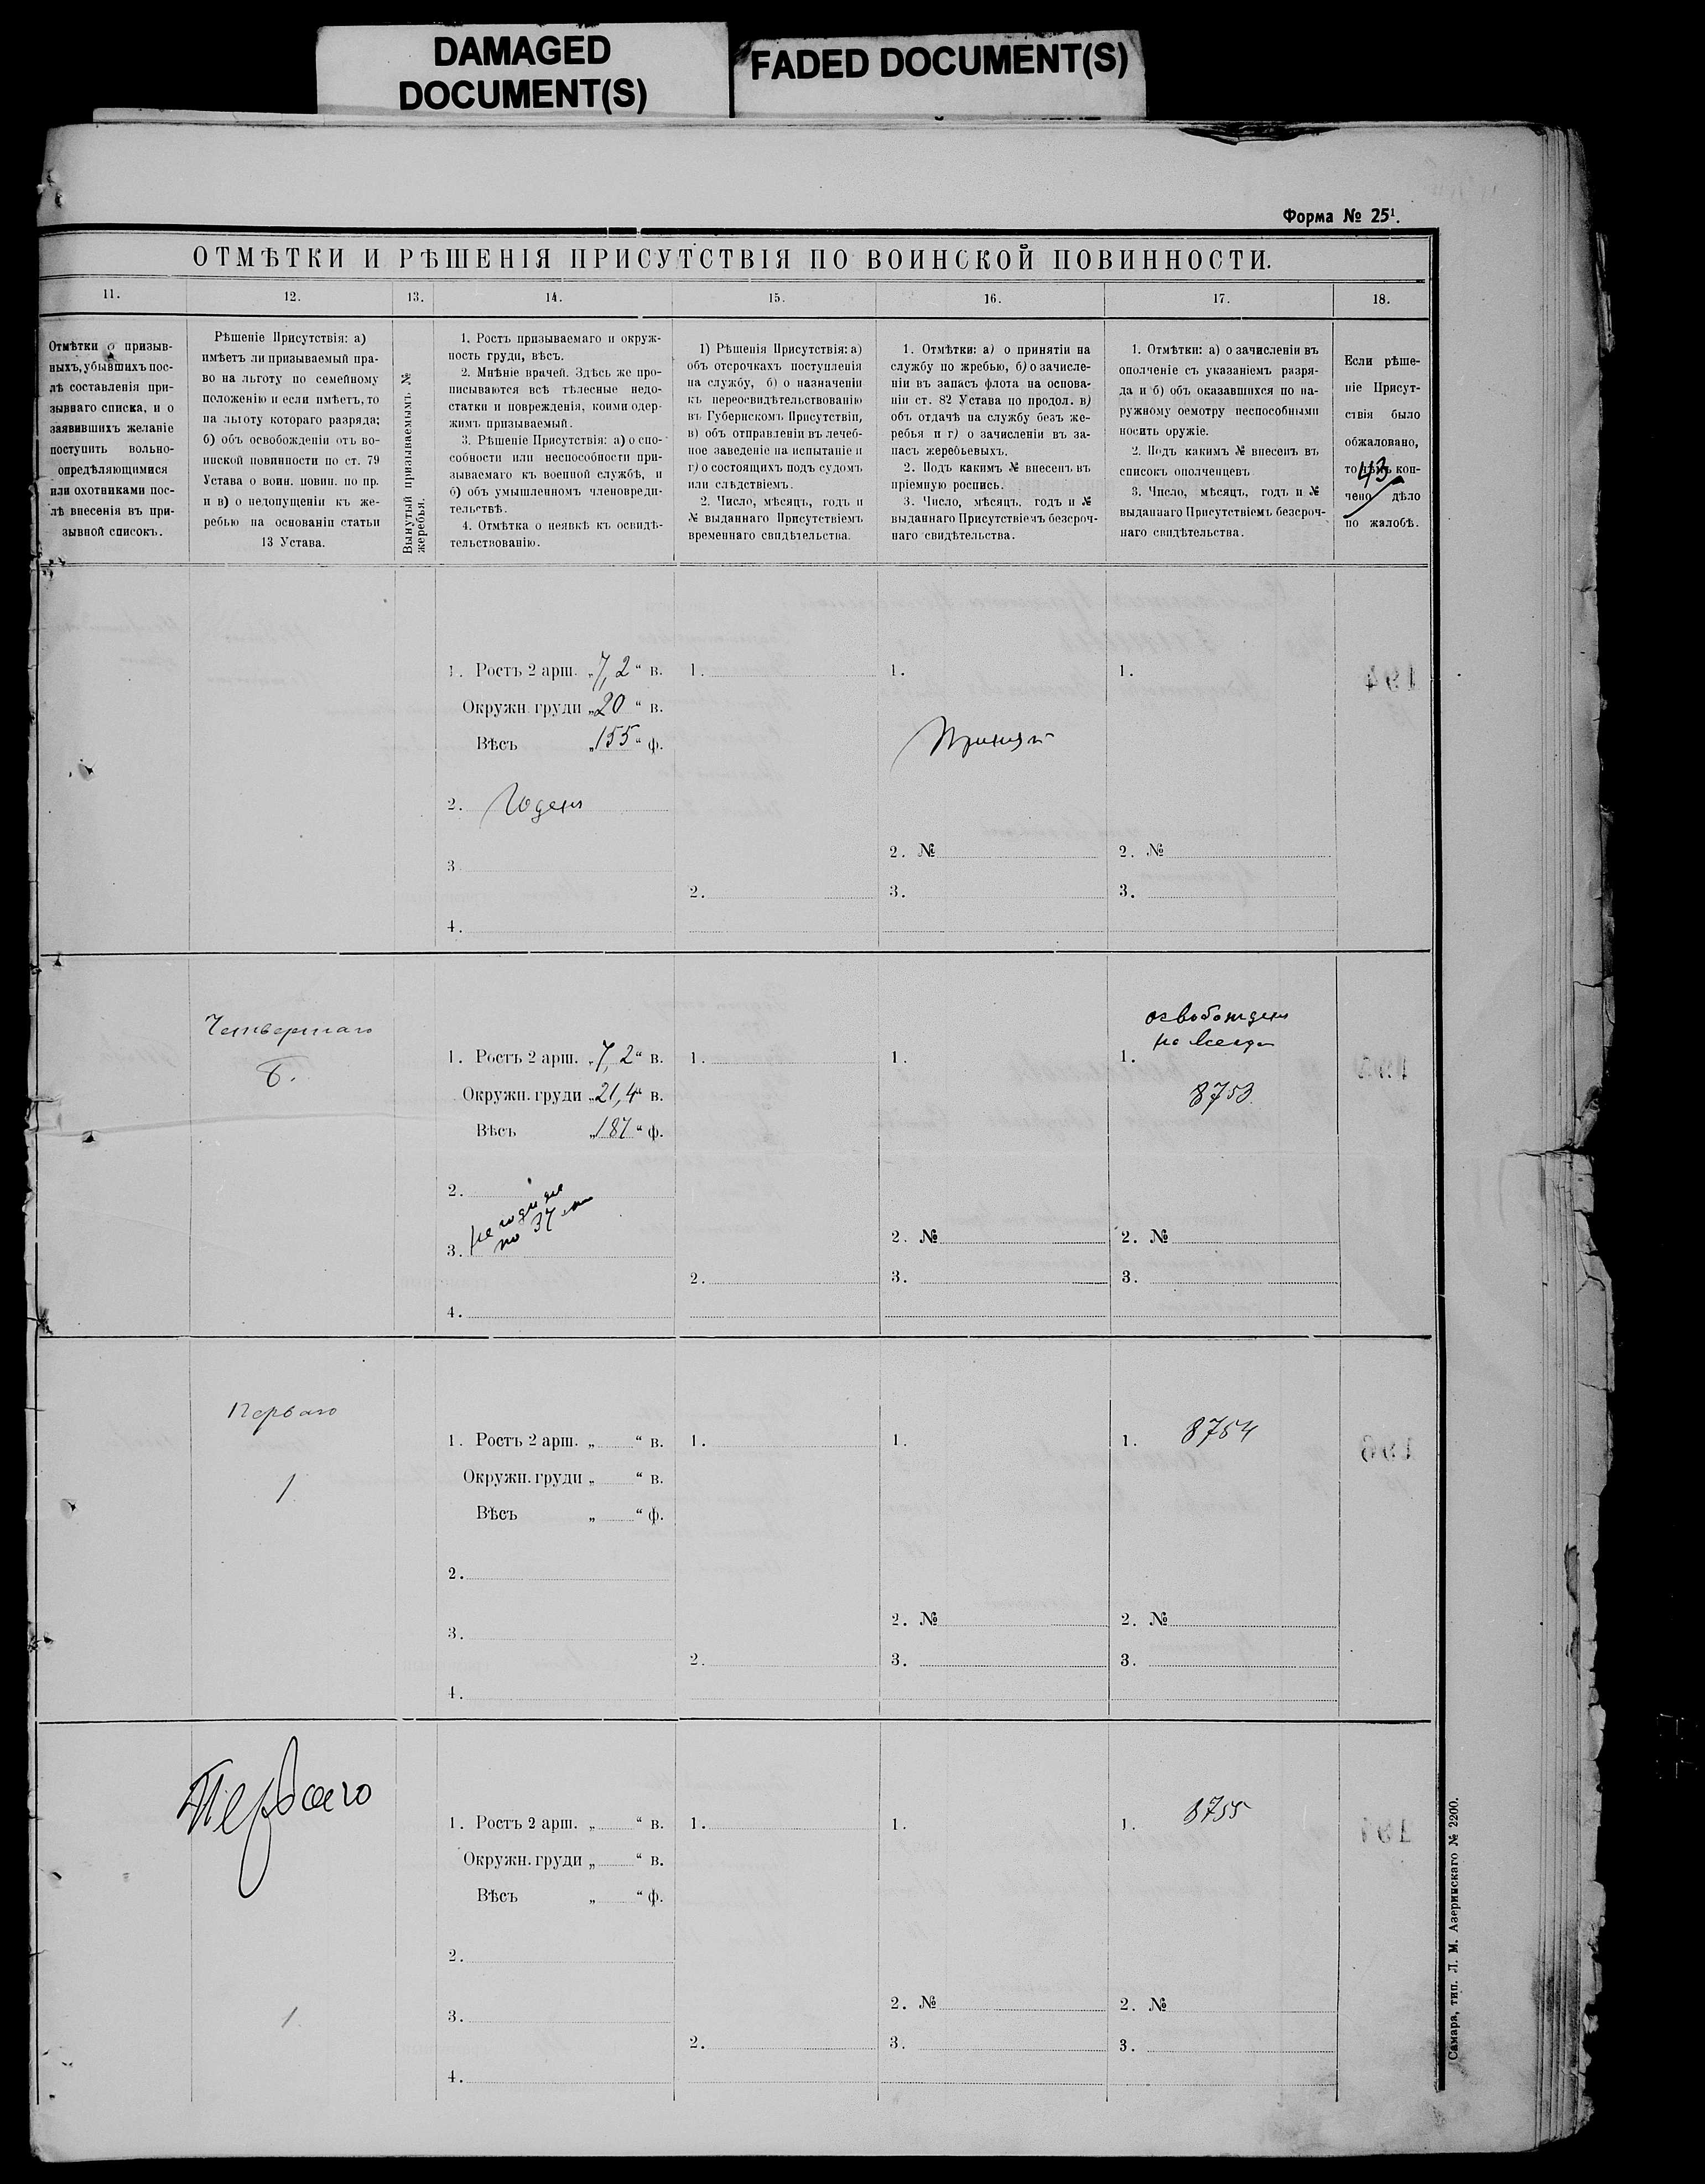 DAMAGED
DOCUMENT(S)
FADED DOCUMENT(S)
Форма № 25¹.
ОТМѢТКИ И РѢШЕНІЯ ПРИСУТСТВІЯ ПО ВОИНСКОЙ ПОВИННОСТИ.
11.
12.
13.
14.
15.
16.
17.
18.
Отмѣтки о призыв-
ныхъ, убывшихъ пос-
лѣ составленія при-
зывнаго списка, и о
заявившихъ желаніе
поступить вольно-
опредѣляющимися
или охотниками пос-
лѣ внесенія въ при-
зывной списокъ.
Рѣшеніе Присутствія: а)
имѣетъ ли призываемый пра-
во на льготу по семейному
положенію и если имѣетъ, то
на льготу котораго разряда;
б) объ освобожденіи отъ во-
инской повинности по ст. 79
Устава о воин. повин. по пр.
и в) о недопущеніи къ же-
ребью на основаніи статьи
13 Устава.
Вынутый призываемымъ №
жеребья.
1. Ростъ призываемаго и окруж-
ность груди, вѣсъ.
2. Мнѣніе врачей. Здѣсь же про-
писываются всѣ тѣлесные недо-
статки и поврежденія, коими одер-
жимъ призываемый.
3. Рѣшеніе Присутствія: а) о спо-
собности или неспособности при-
зываемаго къ военной службѣ, и
б) объ умышленномъ членовреди-
тельствѣ.
4. Отмѣтка о неявкѣ къ освидѣ-
тельствованію.
1) Рѣшенія Присутствія: а)
объ отсрочкахъ поступленія
на службу, б) о назначеніи
къ переосвидѣтельствованію
въ Губернскомъ Присутствіи,
в) объ отправленіи въ лечеб-
ное заведеніе на испытаніе и
г) о состоящихъ подъ судомъ
или слѣдствіемъ.
2. Число, мѣсяцъ, годъ и
№ выданнаго Присутствіемъ
временнаго свидѣтельства.
1. Отмѣтки: а) о принятіи на
службу по жребью, б) о зачисле-
ніи въ запасъ флота на основа-
ніи ст. 82 Устава по продол. в)
объ отдачѣ на службу безъ же-
ребья и г) о зачисленіи въ за-
пасъ жеребьевыхъ.
2. Подъ какимъ № внесенъ въ
пріемную роспись.
3. Число, мѣсяцъ, годъ и №
выданнаго Присутствіемъ безсроч-
наго свидѣтельства.
1. Отмѣтки: а) о зачисленіи въ
ополченіе съ указаніемъ разря-
да и б) объ оказавшихся по на-
ружному осмотру неспособными
носить оружіе.
2. Подъ какимъ № внесенъ въ
списокъ ополченцевъ.
3. Число, мѣсяцъ, годъ и №
выданнаго Присутствіемъ безсроч-
наго свидѣтельства.
Если рѣше-
ніе Присут-
ствія было
обжаловано,
то чѣмъ кон-
чено дѣло
по жалобѣ.
43
1. Ростъ 2 арш. „7,2“ в.
Окружн. груди „20“ в.
Вѣсъ „155“ ф.
2. Годенъ
3
4.
1.
2.
1.
Принятъ
2. №
3.
1.
2. №
3.
Четвертаго
б.
1. Ростъ 2 арш. „7,2“ в.
Окружн. груди „21,4“ в.
Вѣсъ „187“ ф.
2.
не годенъ
по 37
3.
4.
1.
2.
1.
2. №
3.
освобожденъ
на всегда
1.
8753.
2. №
3.
Перваго
1
1. Ростъ 2 арш. „ “ в.
Окружн. груди „ “ в.
Вѣсъ „ “ ф.
2.
3.
4.
1.
2.
1.
2. №
3.
1. 8754
2. №
3.
Перваго
1
1. Ростъ 2 арш. „ “ в.
Окружн. груди „ “ в.
Вѣсъ „ “ ф.
2.
3.
4.
1.
2.
1.
2. №
3.
1. 8755
2. №
3.
Самара, тип. Л. М. Азеринскаго № 2200.